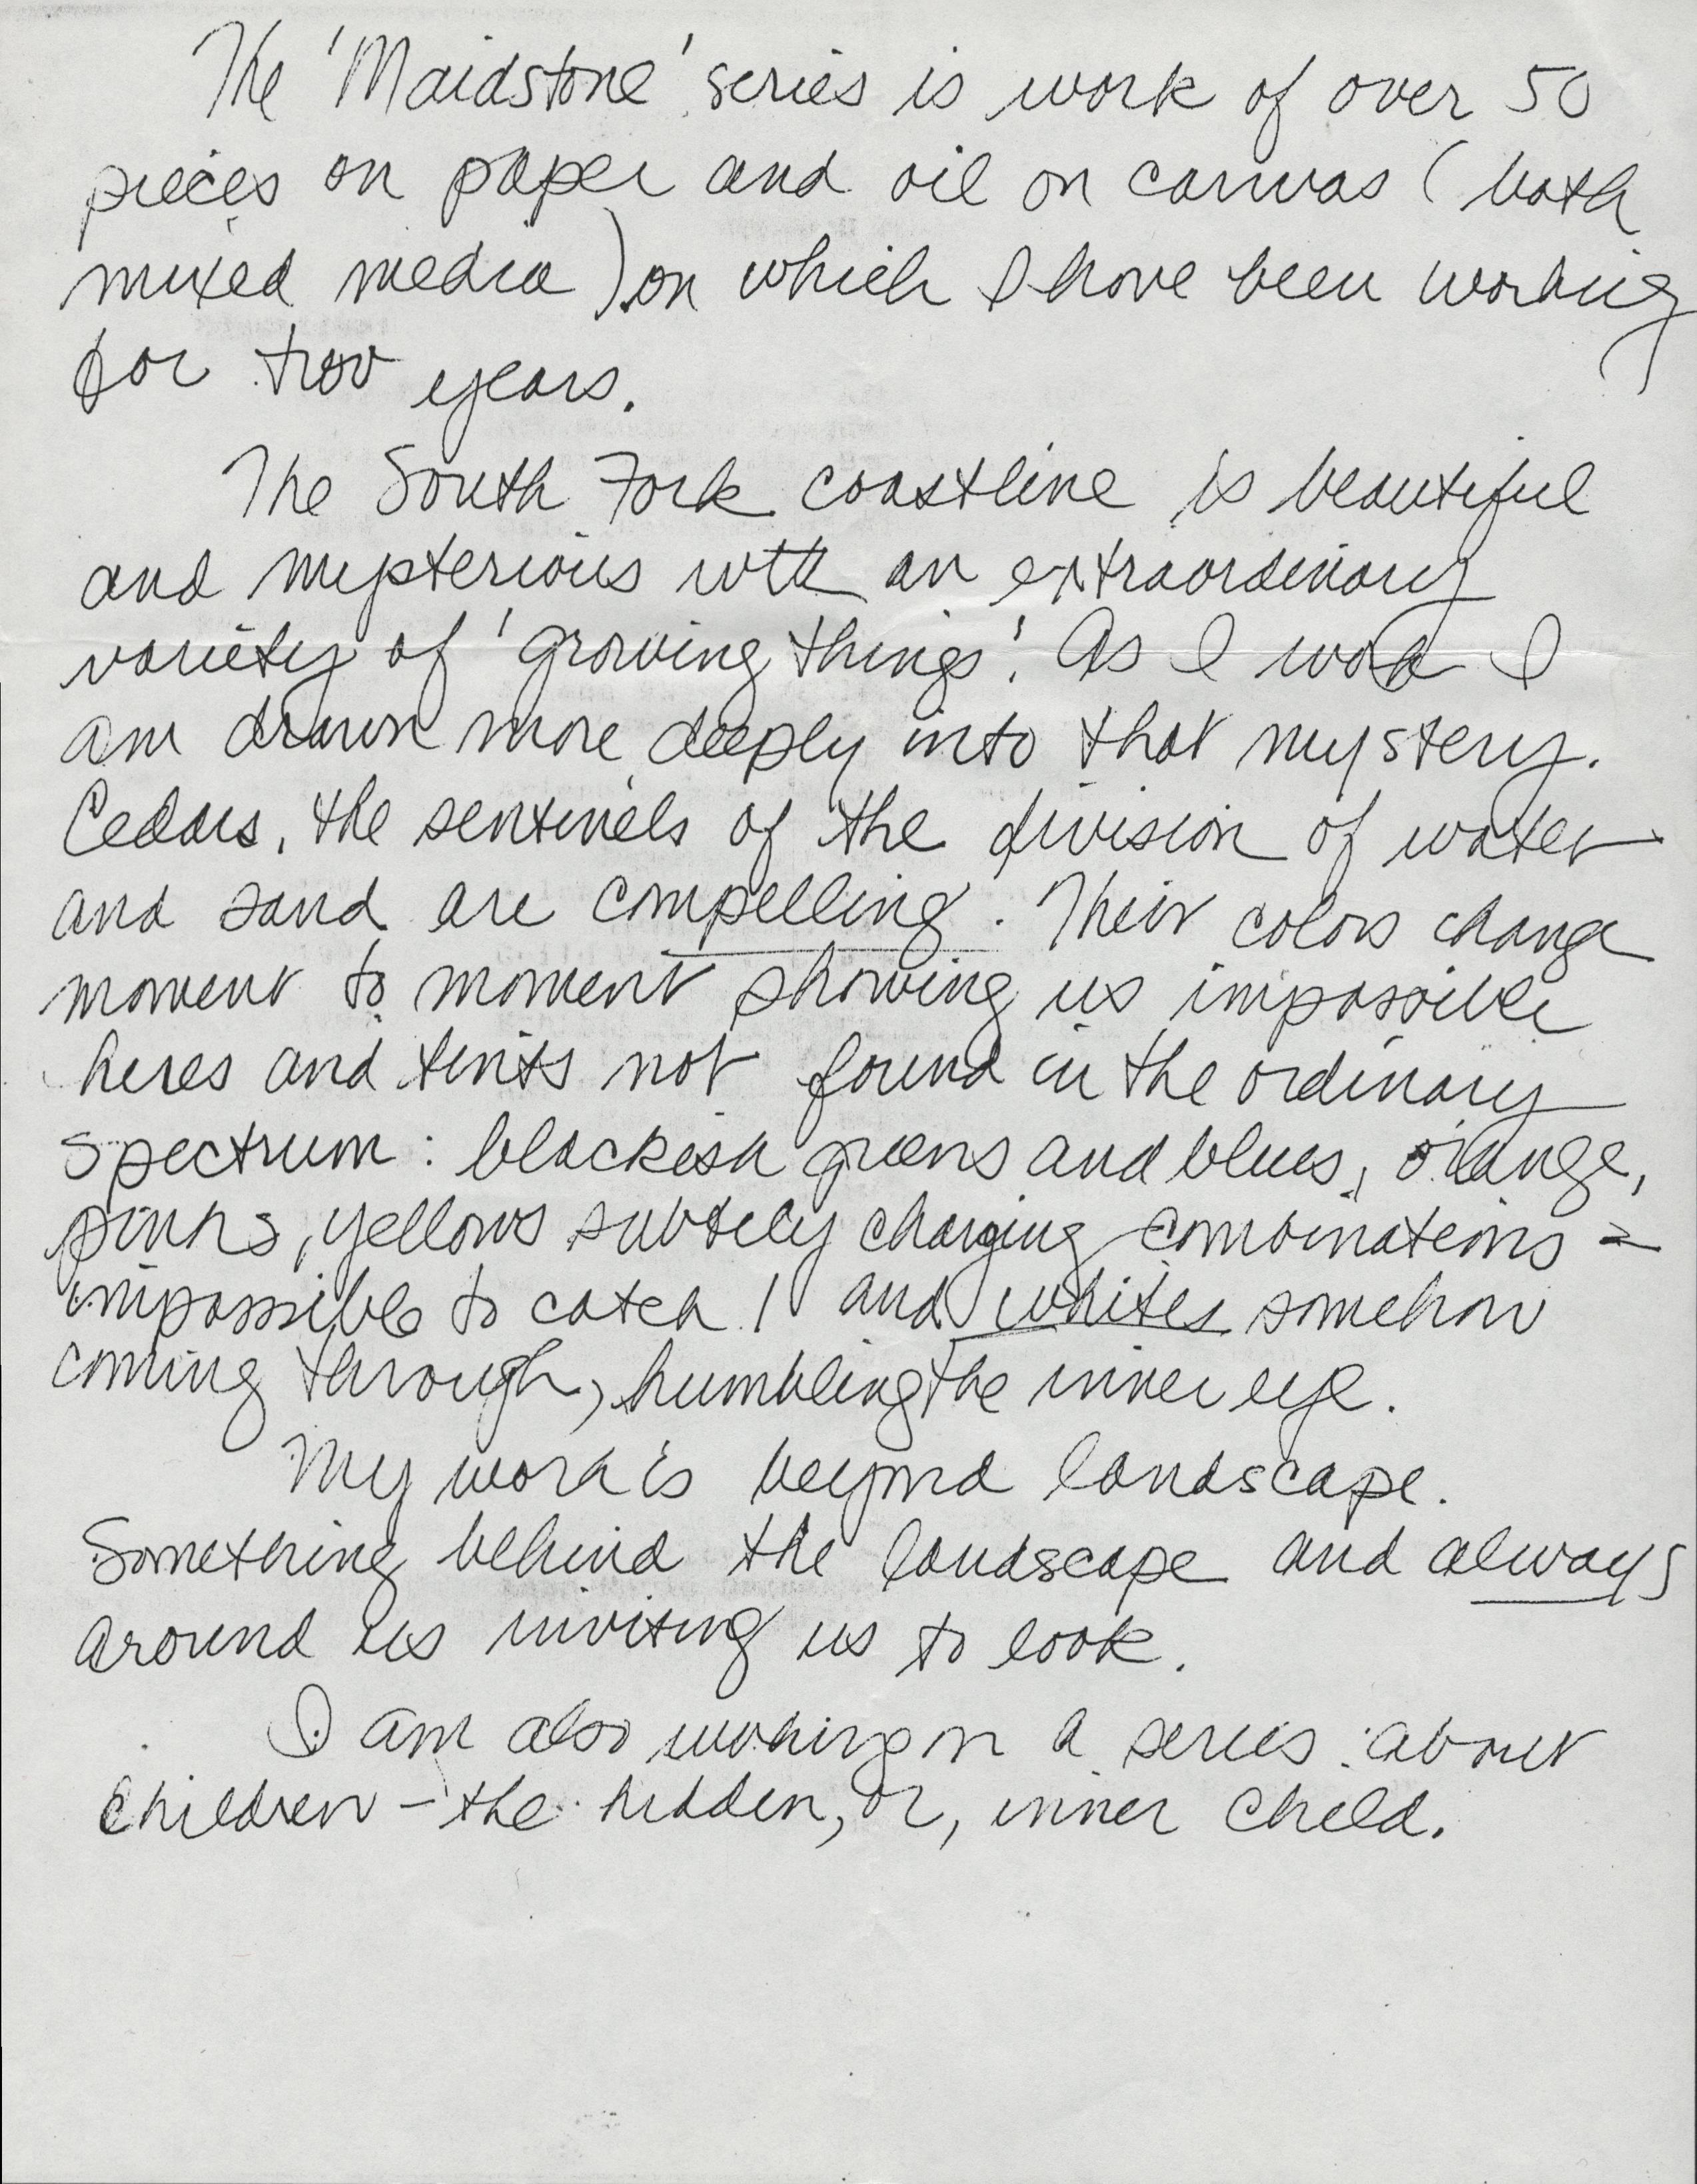 The 'Maidstone' series is work of over 50
pieces on paper and oil on canvas (both
mixed media) on which I have been working
for two years.
The South Fork coastline is beautiful
and mysterious with an extraordinary
variety of 'growing things'. As I work I
am drawn more deeply into that mystery.
Cedars, the sentinels of the division of water
and sand are compelling. Their colors change
moment to moment showing us impossible
hues and tints not found in the ordinary
spectrum: blackish greens and blues, orange,
pinks, yellows subtely changing combinations -
impossible to catch! and whites somehow
coming through, humbling the inner eye.
My work is beyond landscape.
Something behind the landscape and always
around us inviting us to look.
I am also working on a series about
children - the hidden, or, inner child.